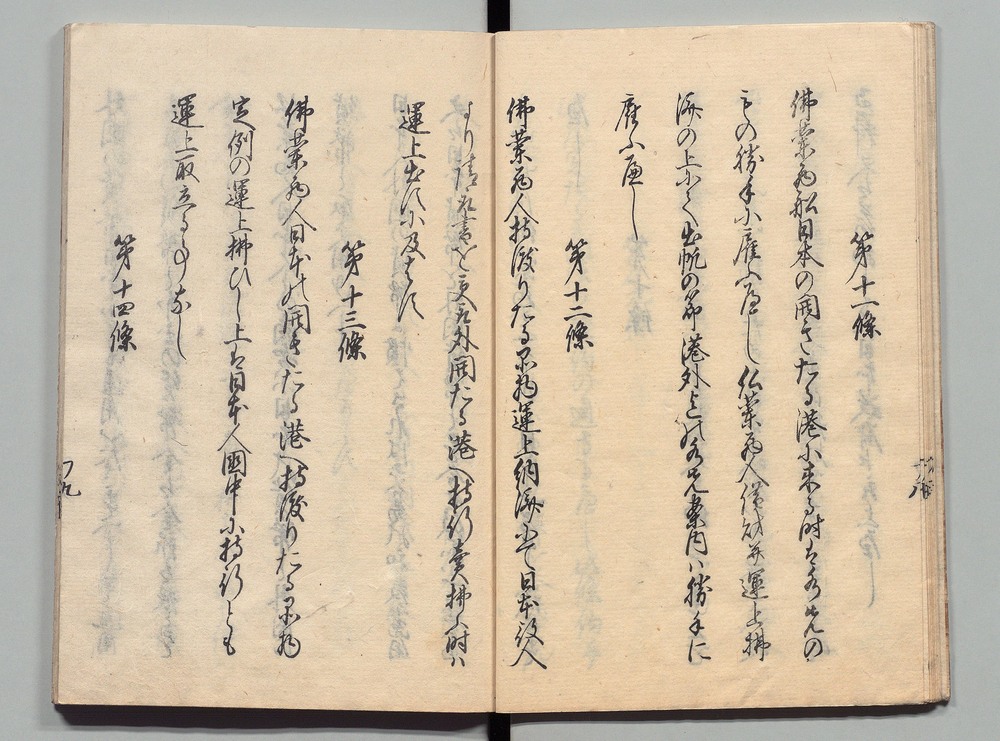 第十一條
佛蘭西船日本の開きたる港に来る時は水先の
ものゝ勝手に雇ふへし仏蘭西人借財并運上拂
済の上にて出帆の節港外迄の水先案内は勝手に
雇ふへし
第十二條
佛蘭西人持渡りたる品物運上納済にて日本役人
より請取書を以て外開たる港へ持行賣拂ふ時ハ
運上出すに及はす
第十三條
佛蘭西人日本の開きたる港へ持渡りたる品物
定例の運上拂ひし上は日本人國中に持行とも
運上取立る事なし
第十四條